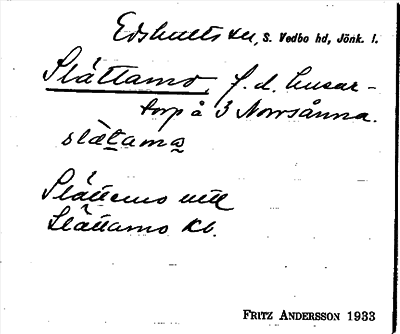 Edshults sn, S. Vedbo hd, Jönk. l.
Slättamo, f. d. husar-
torp å 3 Norrsånna.
slàtama
Slättemo utt
Slättamo kb.
FRITZ ANDERSSON 1933